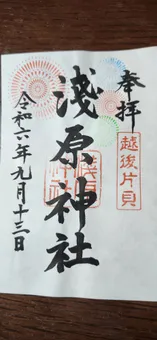 奉拝
越後片貝
浅原神社
令和六年九月十三日